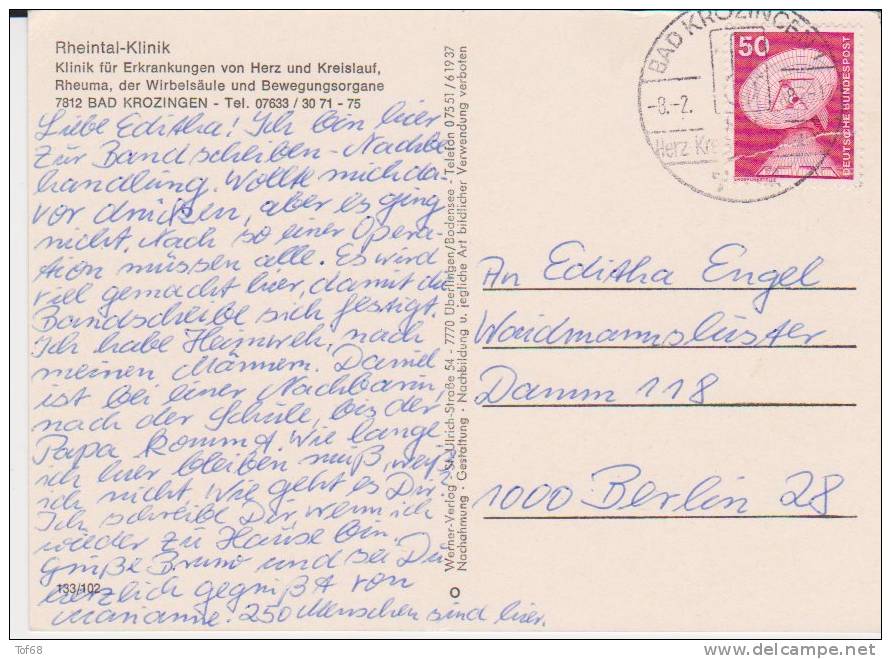 Rheintal-Klinik
Klinik für Erkrankungen von Herz und Kreislauf,
Rheuma, der Wirbelsäule und Bewegungsorgane
7812 BAD KROZINGEN - Tel. 07633 / 30 71 - 75
Liebe Editha! Ich bin hier
zur Bandscheiben-Nachbe
handlung. Wollte mich da-
vor drücken, aber es ging
nicht. Nach so einer Opera-
tion müssen alle. Es wird
viel gemacht hier, damit die
Bandscheibe sich festigt.
Ich habe Heimweh, nach
meinen Männern. Daniel
ist bei einer Nachbarin,
nach der Schule, bis der
Papa kommt. Wie lange
ich hier bleiben muß, weiß
ich nicht. Wie geht es Dir?
Ich schreibe Dir, wenn ich
wieder zu Hause bin.
Grüße Bruno und sei Du
herzlich gegrüßt von
Marianne. 250 Menschen sind hier.
133/102
Werner-Verlag · St.-Ulrich-Straße 54 - 7770 Überlingen/Bodensee - Telefon 07551/61937
Nachahmung · Gestaltung · Nachbildung u. jegliche Art bildlicher Verwendung verboten
BAD KROZINGEN
-8.-2.
Herz
50
DEUTSCHE BUNDESPOST
An Editha Engel
Waidmannsluster
Damm 118
1000 Berlin 28
Tof68
delcampe.net